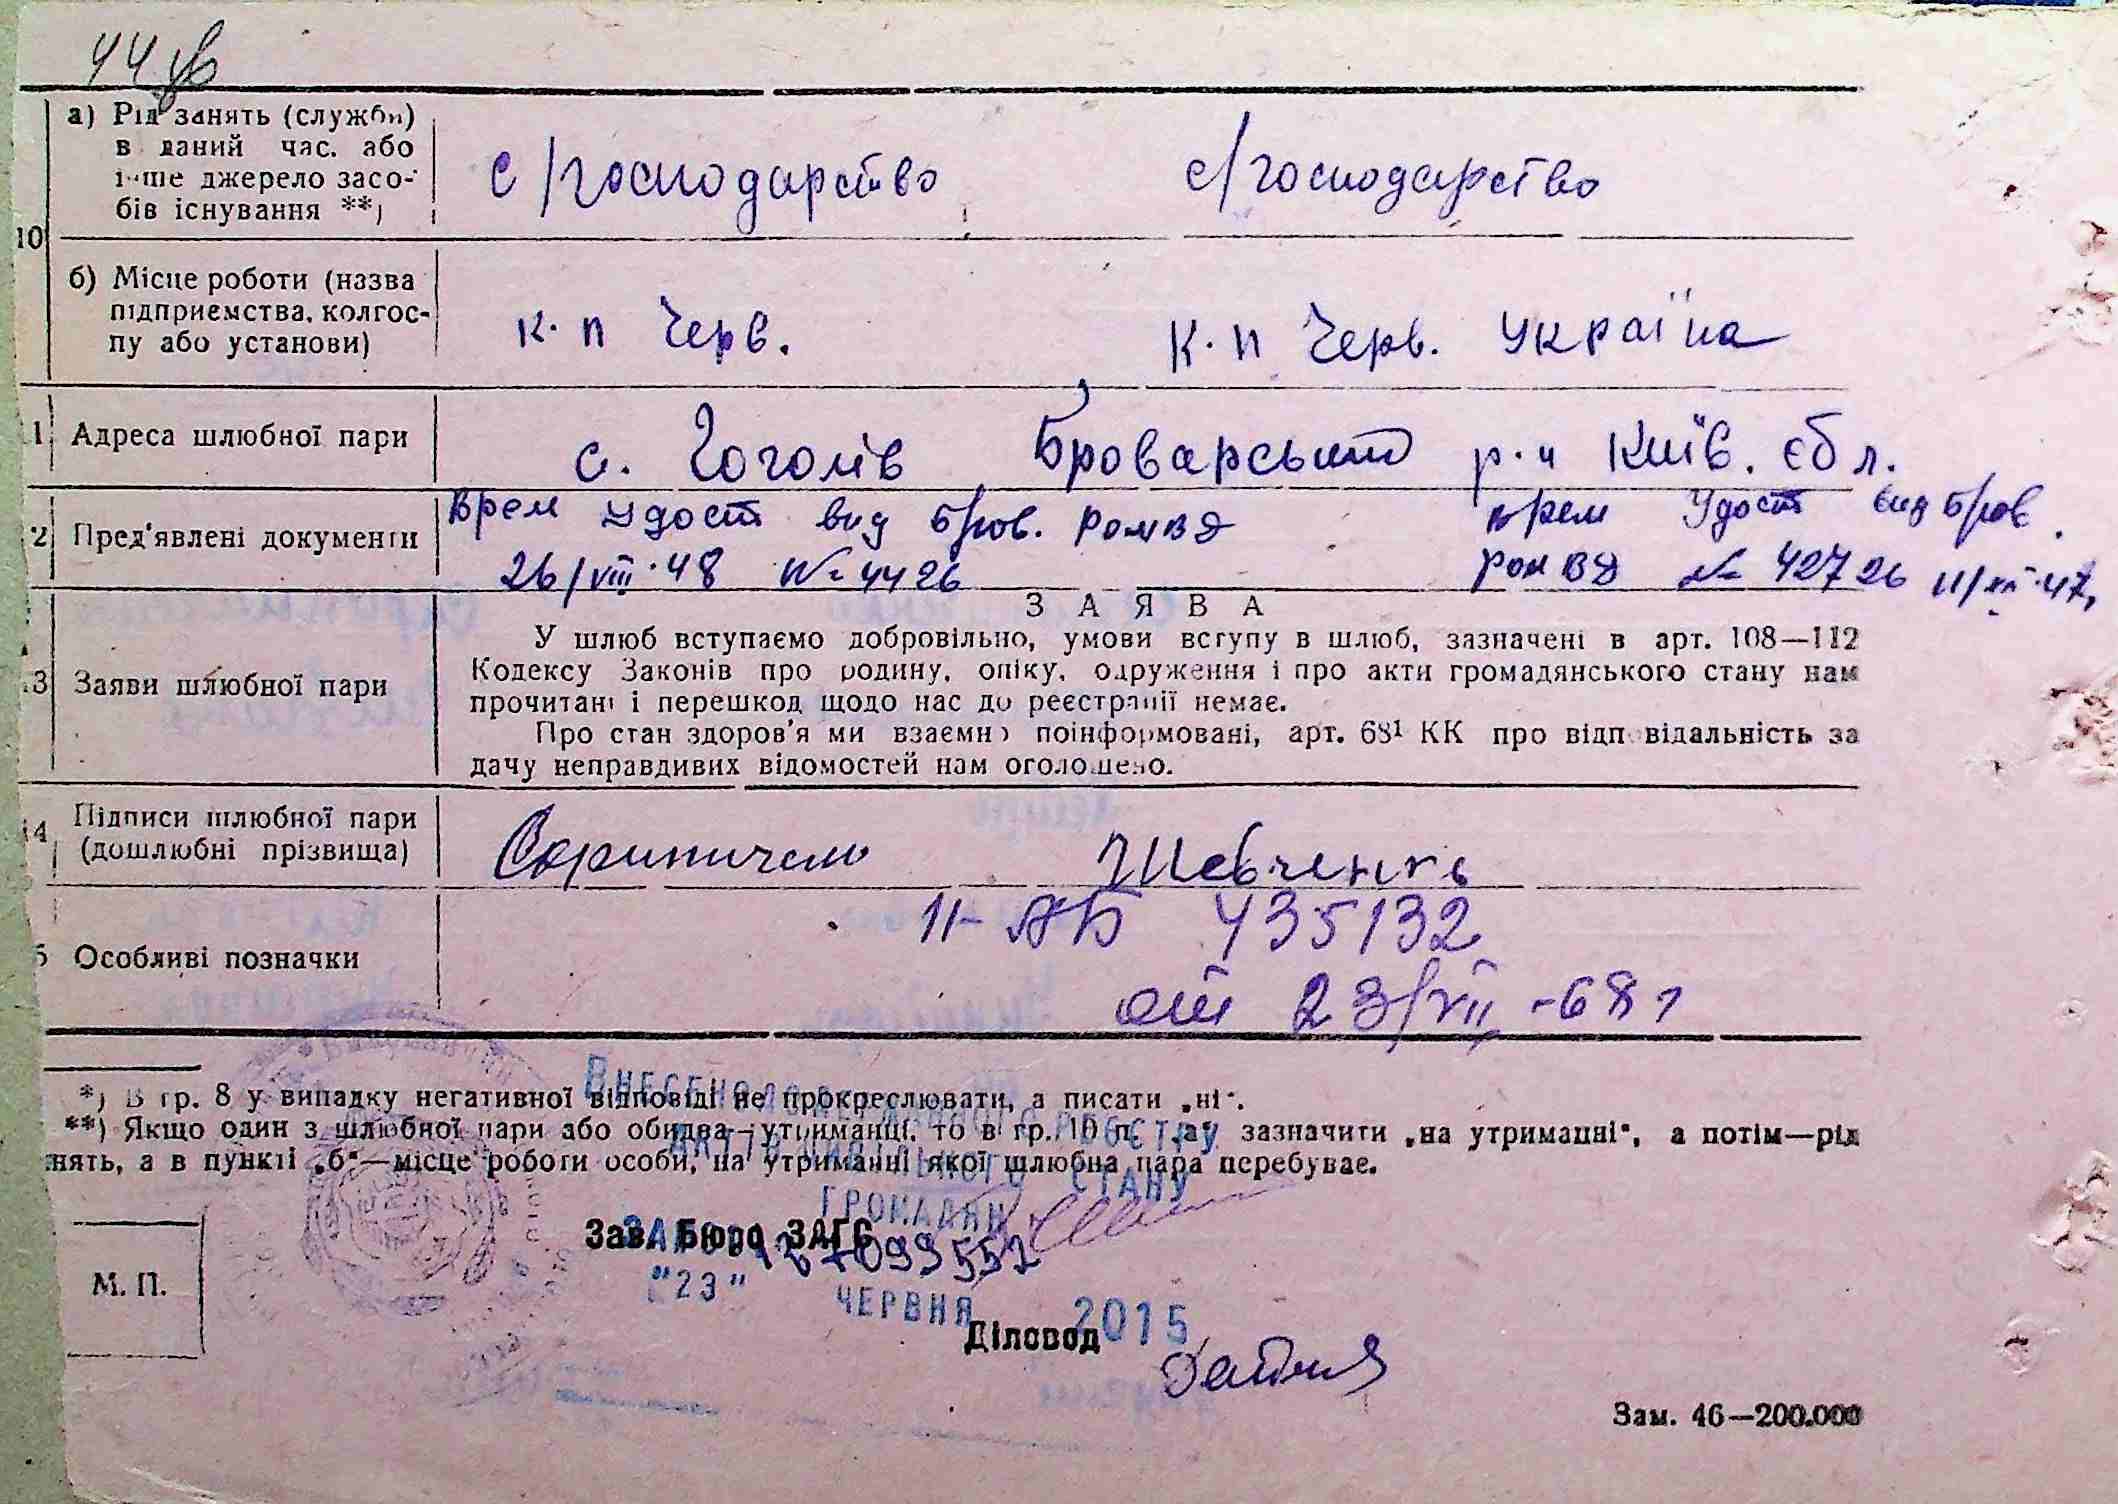 44 зв
10
а) Рід занять (служби) в даний час, або інше джерело засобів існування **)
с/господарство с/господарство
б) Місце роботи (назва підприємства, колгоспу або установи)
к.п Черв. к.п Черв. Україна
11 Адреса шлюбної пари
с. Гоголів Броварський р-н Київ. обл.
12 Пред'явлені документи
Врем Удост вид Бров. РОМВД
26/VIII·48 № 4426
врем Удост вид Бров.
РОМВД № 42726
13 Заяви шлюбної пари
ЗАЯВА
У шлюб вступаємо добровільно, умови вступу в шлюб, зазначені в арт. 108—112
Кодексу Законів про родину, опіку, одруження і про акти громадянського стану нам
прочитані і перешкод щодо нас до реєстрації немає.
Про стан здоров'я ми взаємно поінформовані, арт. 68¹ КК про відповідальність за
дачу неправдивих відомостей нам оголошено.
14 Підписи шлюбної пари
(дошлюбні прізвища)
Шевченко
15 Особливі позначки
II-АБ 435132
от 23/VII-68 г
*) В гр. 8 у випадку негативної відповіді не прокреслювати, а писати „ні".
**) Якщо один з шлюбної пари або обидва—утриманці, то в гр. 10 п. „а" зазначити „на утриманні", а потім—рід
нять, а в пункті „б"—місце роботи особи, на утриманні якої шлюбна пара перебуває.
ВНЕСЕНО ДО ДЕРЖАВНОГО РЕЄСТРУ
АКТІВ ЦИВІЛЬНОГО СТАНУ
ГРОМАДЯН
Зав. Бюро ЗАГС
"23" ЧЕРВНЯ 2015
Діловод
М. П.
Зам. 46—200.000